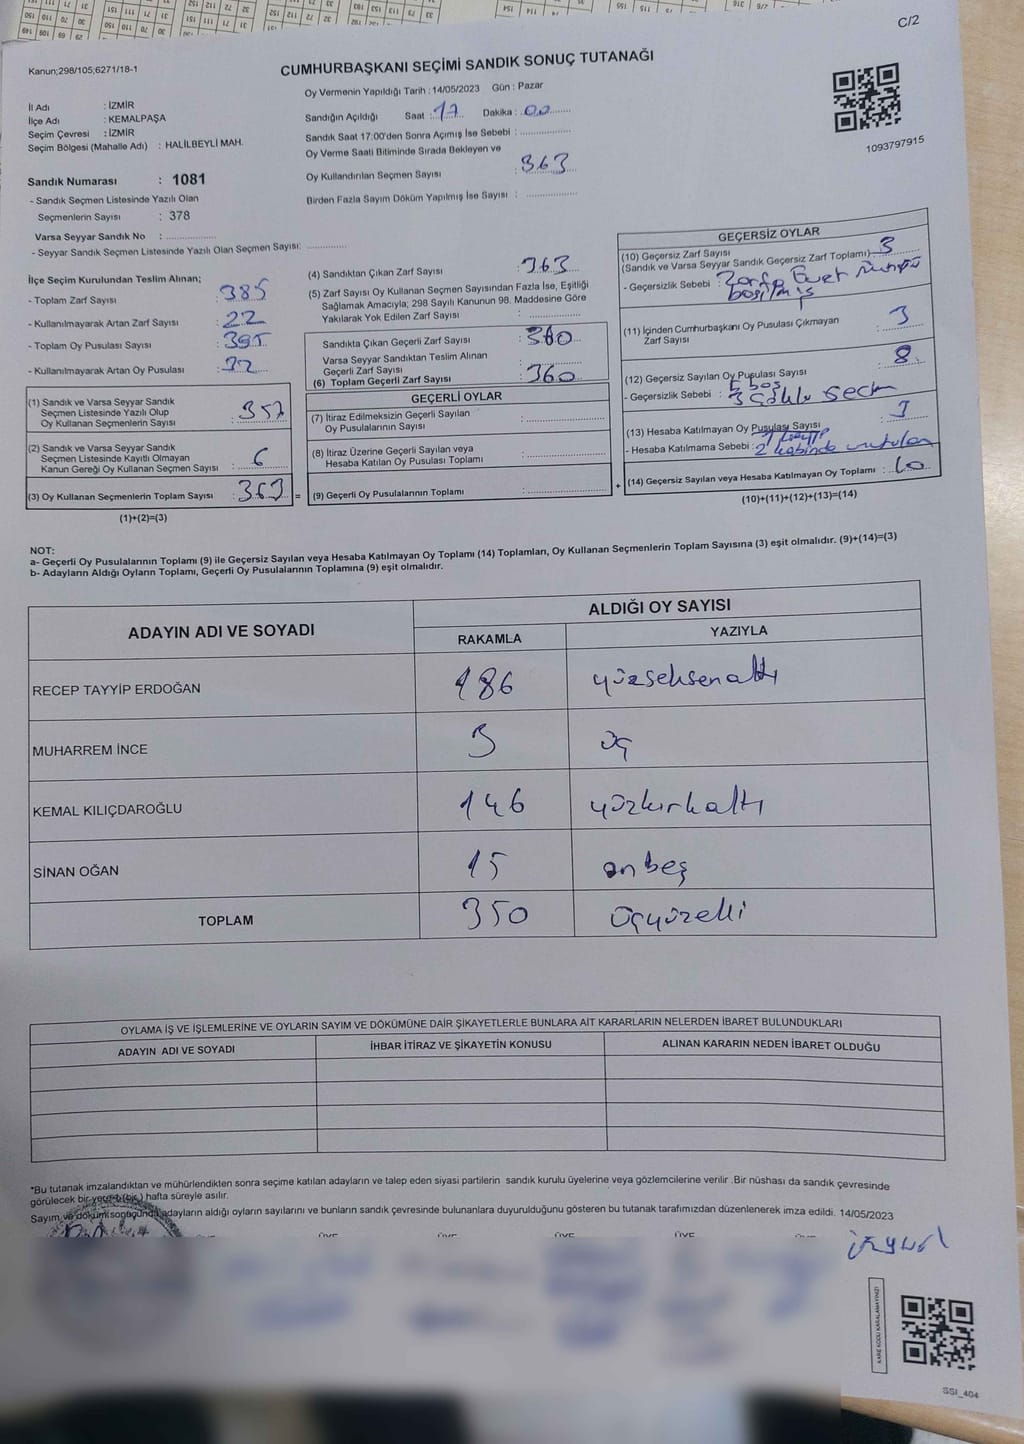 C/2
Kanun;298/105;6271/18-1
CUMHURBAŞKANI SEÇİMİ SANDIK SONUÇ TUTANAĞI
Oy Vermenin Yapıldığı Tarih : 14/05/2023 Gün : Pazar
İl Adı : İZMİR
İlçe Adı : KEMALPAŞA
Seçim Çevresi : İZMİR
Seçim Bölgesi (Mahalle Adı) : HALİLBEYLİ MAH.
Sandığın Açıldığı Saat : 17 Dakika : 00
Sandık Saat 17:00'den Sonra Açımış İse Sebebi :
Oy Verme Saati Bitiminde Sırada Bekleyen ve
Oy Kullandırılan Seçmen Sayısı : 363
Birden Fazla Sayım Döküm Yapılmış İse Sayısı :
1093797915
Sandık Numarası : 1081
- Sandık Seçmen Listesinde Yazılı Olan
Seçmenlerin Sayısı : 378
Varsa Seyyar Sandık No :
- Seyyar Sandık Seçmen Listesinde Yazılı Olan Seçmen Sayısı:
İlçe Seçim Kurulundan Teslim Alınan;
- Toplam Zarf Sayısı : 385
- Kullanılmayarak Artan Zarf Sayısı : 22
- Toplam Oy Pusulası Sayısı : 395
- Kullanılmayarak Artan Oy Pusulası : 32
(1) Sandık ve Varsa Seyyar Sandık
Seçmen Listesinde Yazılı Olup
Oy Kullanan Seçmenlerin Sayısı : 357
(2) Sandık ve Varsa Seyyar Sandık
Seçmen Listesinde Kayıtlı Olmayan
Kanun Gereği Oy Kullanan Seçmen Sayısı : 6
(3) Oy Kullanan Seçmenlerin Toplam Sayısı : 363 =
(1)+(2)=(3)
(4) Sandıktan Çıkan Zarf Sayısı : 363
(5) Zarf Sayısı Oy Kullanan Seçmen Sayısından Fazla İse, Eşitliği
Sağlamak Amacıyla; 298 Sayılı Kanunun 98. Maddesine Göre
Yakılarak Yok Edilen Zarf Sayısı :
Sandıkta Çıkan Geçerli Zarf Sayısı : 360
Varsa Seyyar Sandıktan Teslim Alınan
Geçerli Zarf Sayısı :
(6) Toplam Geçerli Zarf Sayısı : 360
GEÇERLİ OYLAR
(7) İtiraz Edilmeksizin Geçerli Sayılan
Oy Pusulalarının Sayısı :
(8) İtiraz Üzerine Geçerli Sayılan veya
Hesaba Katılan Oy Pusulası Toplamı :
(9) Geçerli Oy Pusulalarının Toplamı : +
GEÇERSİZ OYLAR
(10) Geçersiz Zarf Sayısı
(Sandık ve Varsa Seyyar Sandık Geçersiz Zarf Toplamı) : 3
- Geçersizlik Sebebi : Zarfa Evet mührü
basılmış
(11) İçinden Cumhurbaşkanı Oy Pusulası Çıkmayan
Zarf Sayısı : 3
(12) Geçersiz Sayılan Oy Pusulası Sayısı : 8
- Geçersizlik Sebebi : 5 boş
3 çoklu seçim
(13) Hesaba Katılmayan Oy Pusulası Sayısı
- Hesaba Katılmama Sebebi : 2 kabinde unutulan
(14) Geçersiz Sayılan veya Hesaba Katılmayan Oy Toplamı : 10
(10)+(11)+(12)+(13)=(14)
NOT:
a- Geçerli Oy Pusulalarının Toplamı (9) ile Geçersiz Sayılan veya Hesaba Katılmayan Oy Toplamı (14) Toplamları, Oy Kullanan Seçmenlerin Toplam Sayısına (3) eşit olmalıdır. (9)+(14)=(3)
b- Adayların Aldığı Oyların Toplamı, Geçerli Oy Pusulalarının Toplamına (9) eşit olmalıdır.
ADAYIN ADI VE SOYADI
ALDIĞI OY SAYISI
RAKAMLA YAZIYLA
RECEP TAYYİP ERDOĞAN 186 yüzseksenaltı
MUHARREM İNCE 3 üç
KEMAL KILIÇDAROĞLU 146 yüzkırkaltı
SİNAN OĞAN 15 onbeş
TOPLAM 350 üçyüzelli
OYLAMA İŞ VE İŞLEMLERİNE VE OYLARIN SAYIM VE DÖKÜMÜNE DAİR ŞİKAYETLERLE BUNLARA AİT KARARLARIN NELERDEN İBARET BULUNDUKLARI
ADAYIN ADI VE SOYADI İHBAR İTİRAZ VE ŞİKAYETİN KONUSU ALINAN KARARIN NEDEN İBARET OLDUĞU
*Bu tutanak imzalandıktan ve mühürlendikten sonra seçime katılan adayların ve talep eden siyasi partilerin sandık kurulu üyelerine veya gözlemcilerine verilir .Bir nüshası da sandık çevresinde
görülecek bir yere ( bir ) hafta süreyle asılır.
Sayım ve döküm sonucunda adayların aldığı oyların sayılarını ve bunların sandık çevresinde bulunanlara duyurulduğunu gösteren bu tutanak tarafımızdan düzenlenerek imza edildi. 14/05/2023
KARE KODU KARALAMAYINIZ!
SSI_404